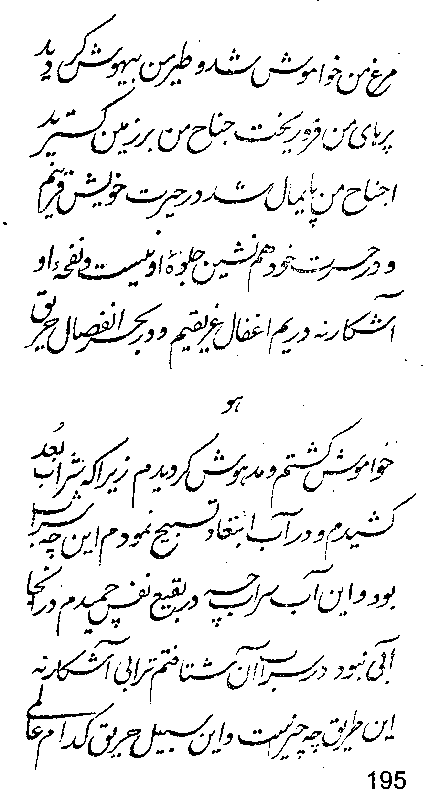 مرغ من خواموش شد و طیر من بیهوش گردید
پرهای من فرو ریخت جناح من بر زمین گسترید
اجناح من پایمال شد در حیرت خویش قرینم
و در حسرت خود هم نشین جلوهٔ او نیست و نفحهٔ او
آشکار نه در یم اغفال غریقیم و در بحر انفصال حریق
هو
خواموش گشتم و مدهوش گردیدم زیرا که شراب بُعد
کشیدم و در آب ابتعاد تسبیح نمودم این چه شراب
بود و این آب سراب چه در بقیع نفس چمیدم در آنجا
آبی نبود در سراب آن شتافتم ترابی آشکار نه
این طریق چه چیز است و این سبیل حریق کدام عالمی
195